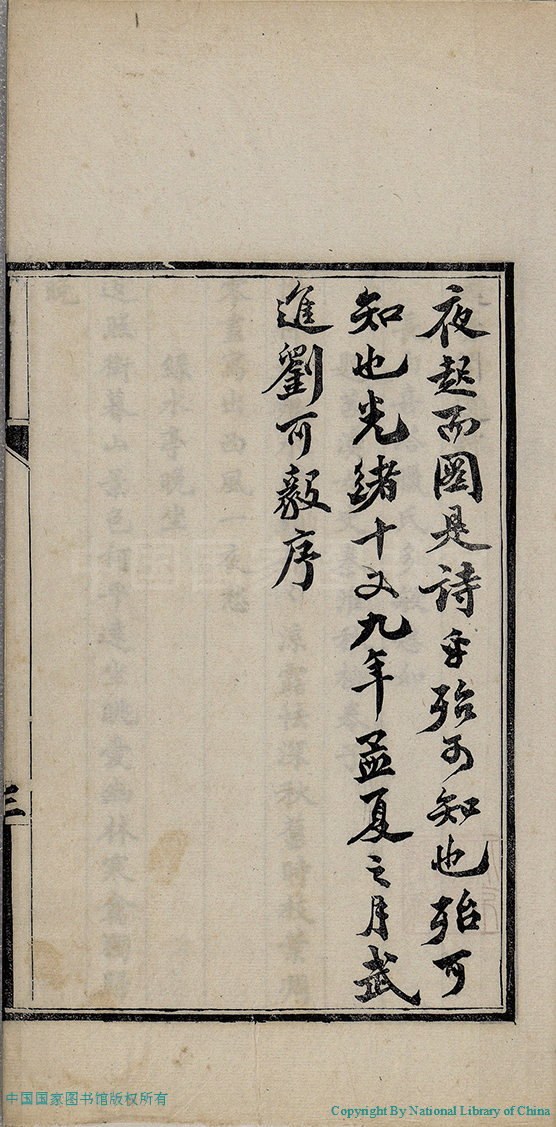 夜起而圖是詩乎殆可知也殆可
知也光緒十又九年孟夏之月武
進劉可毅序
三
中国国家图书馆版权所有
Copyright By National Library of China